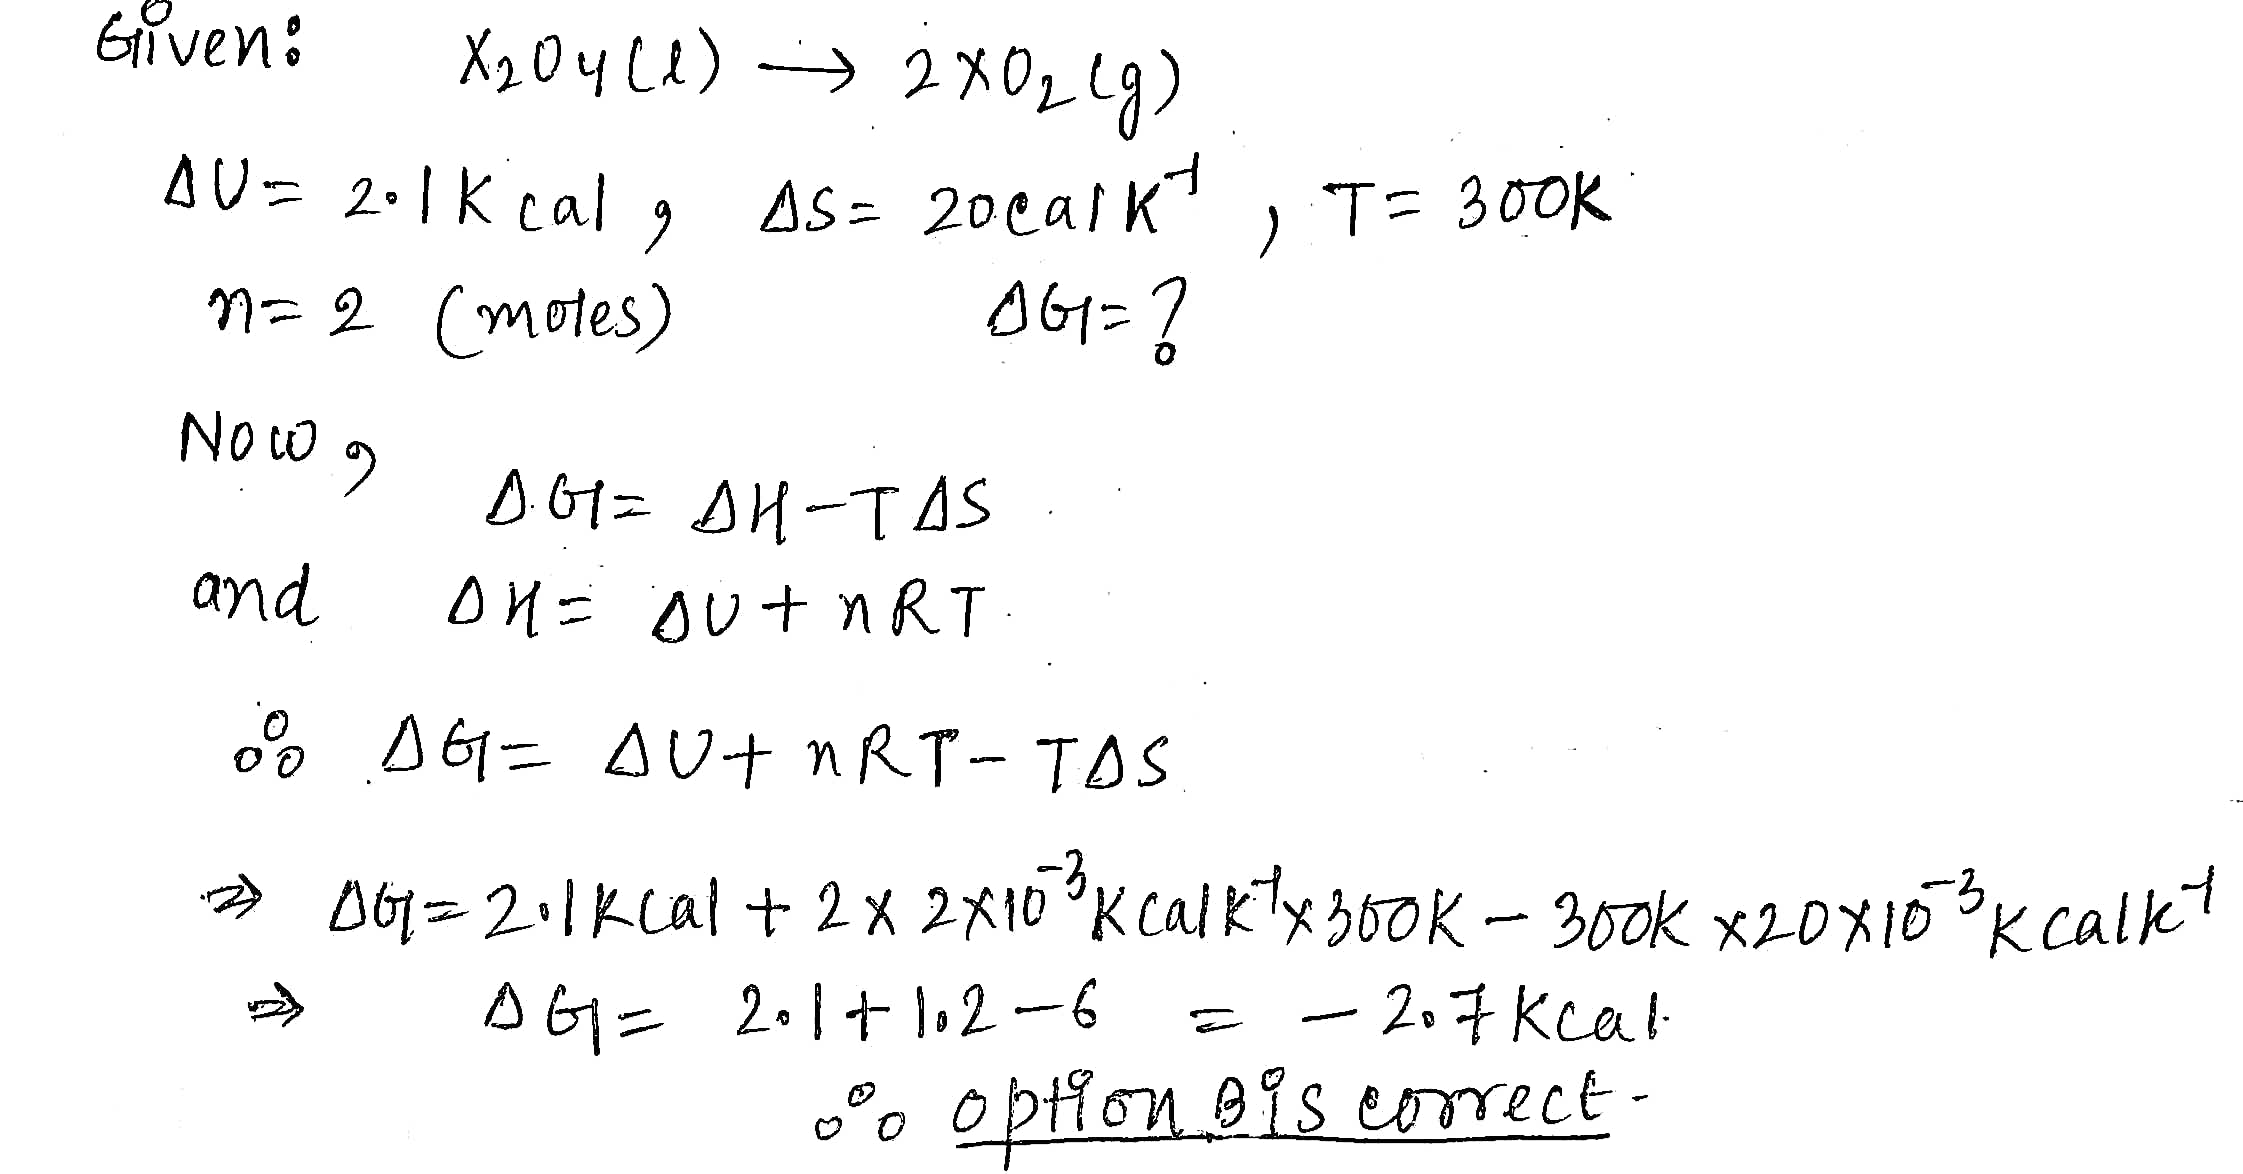 Given: X₂O₄(l) → 2XO₂(g)
ΔU = 2.1 K cal, ΔS = 20 cal K⁻¹, T = 300K
n = 2 (moles) ΔG = ?
Now,
ΔG = ΔH - TΔS
and ΔH = ΔU + nRT
∴ ΔG = ΔU + nRT - TΔS
⇒ ΔG = 2.1 Kcal + 2 × 2×10⁻³ K cal K⁻¹ × 300K - 300K × 20×10⁻³ K cal K⁻¹
⇒ ΔG = 2.1 + 1.2 - 6 = - 2.7 Kcal.
∴ option B is correct.